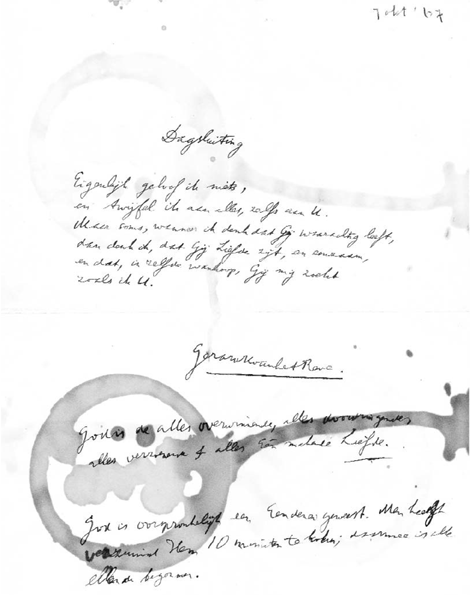 7 okt '67
Dagsluiting
Eigenlijk geloof ik niets,
en twijfel ik aan alles, zelfs aan U.
Maar soms, wanneer ik denk dat Gij waarachtig leeft,
dan denk ik, dat Gij Liefde zijt, en eenzaam,
en dat, in zelfde wanhoop, Gij mij zoekt
zoals ik U.
Gerard Kornelis van het Reve.
God is de alles overwinnende, alles doordringende,
alles verzoenende & alles Liefde.
God is oorspronkelijk een geweest. Men heeft
verzuimd Hem 10 minuten te koken; daarmee is alle
ellende begonnen.